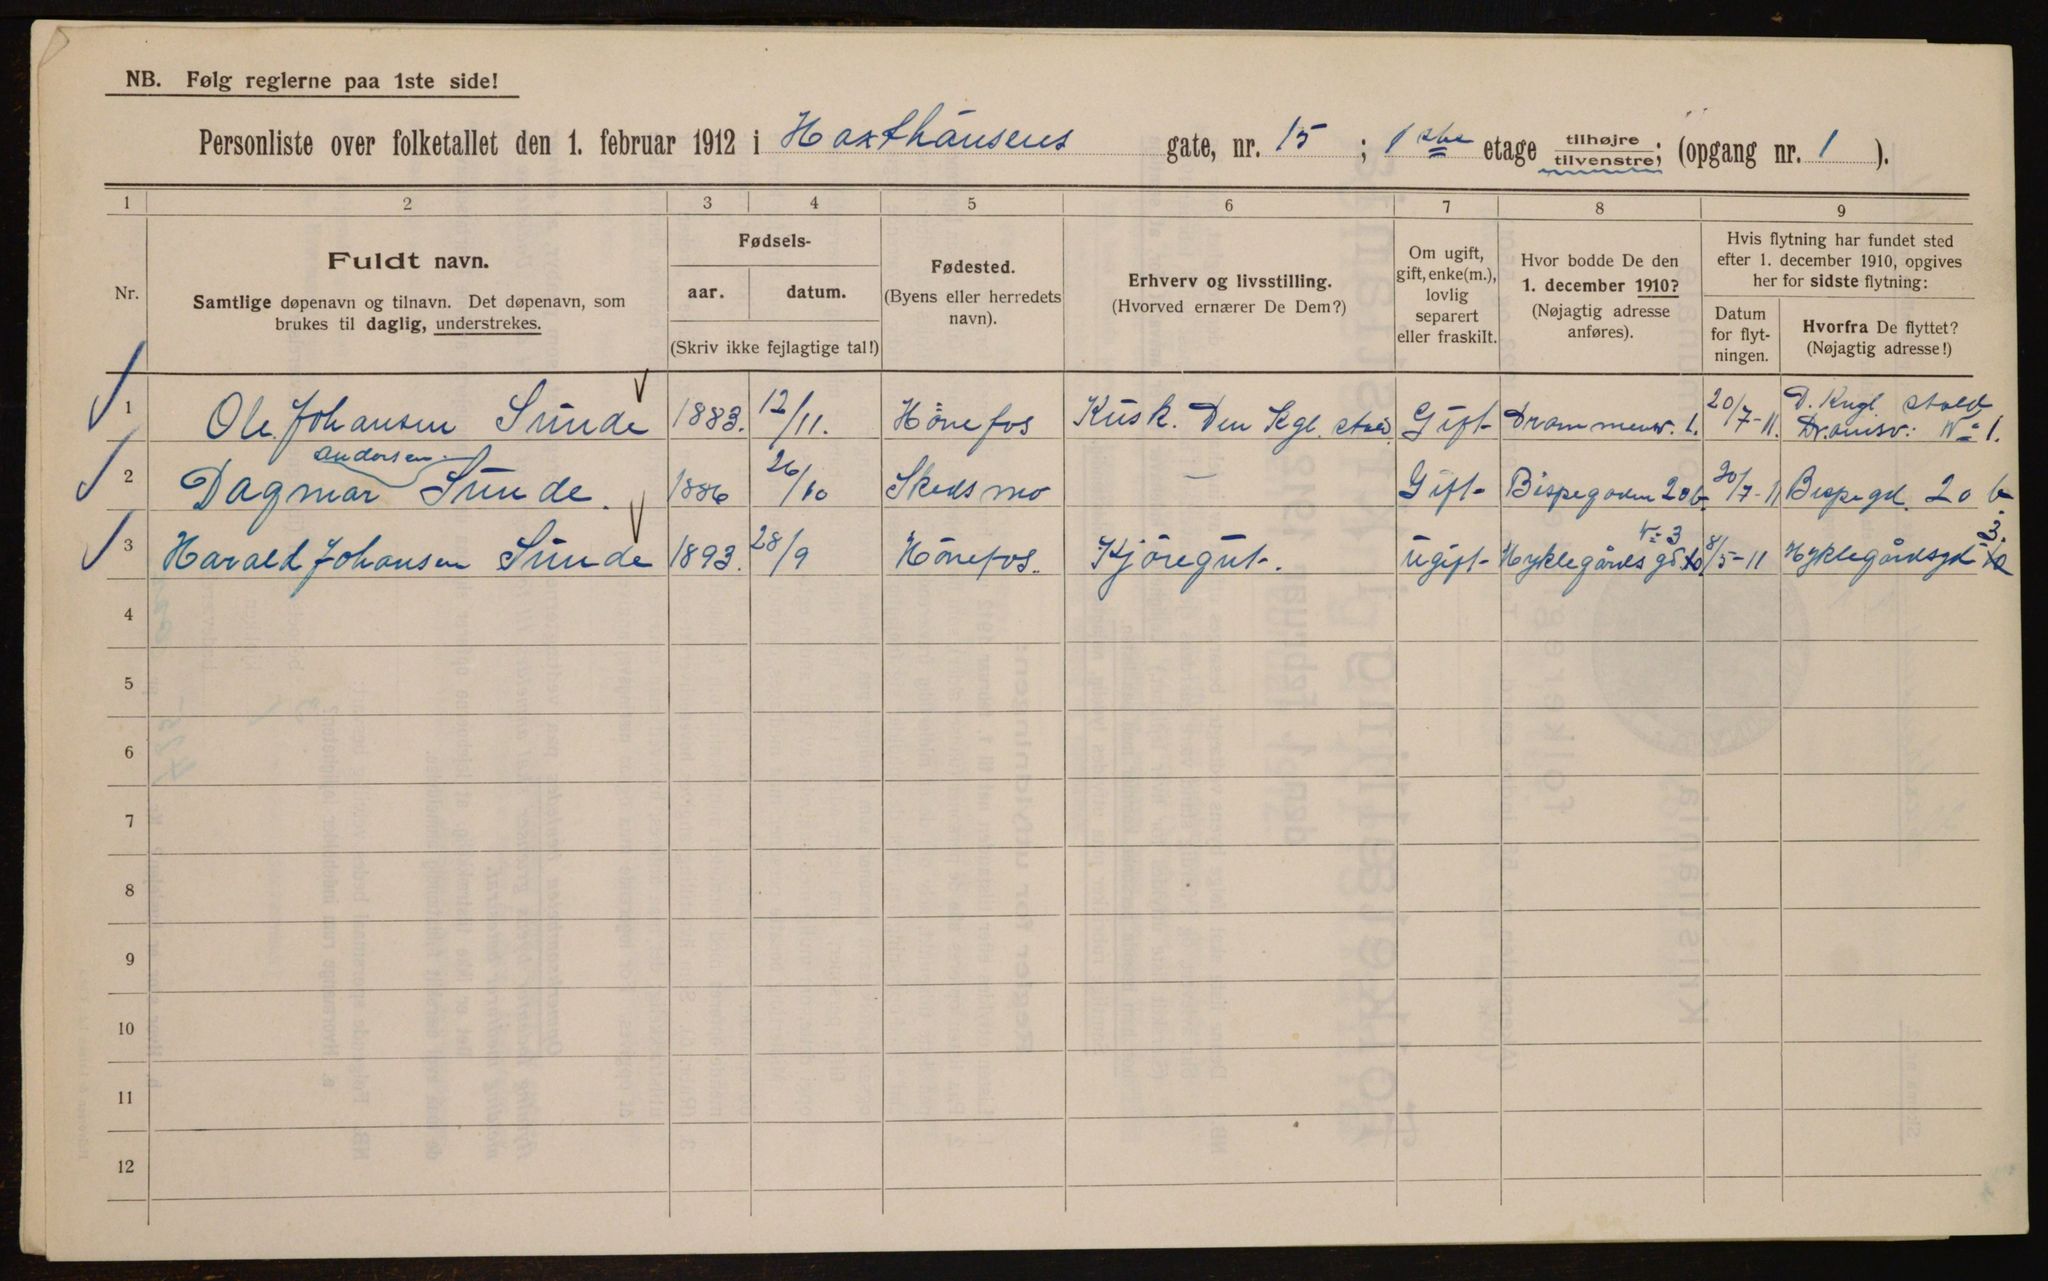 NB. Følg reglerne paa 1ste side!
Personliste over folketallet den 1. februar 1912 i Haxthausens gate, nr. 15 ; 1ste etage tilhøjre tilvenstre; (opgang nr. 1 ).
1 2 3 4 5 6 7 8 9
Nr.
Fuldt navn.
Samtlige døpenavn og tilnavn. Det døpenavn, som
brukes til daglig, understrekes.
Fødsels-
aar. datum.
(Skriv ikke fejlagtige tal!)
Fødested.
(Byens eller herredets
navn).
Erhverv og livsstilling.
(Hvorved ernærer De Dem?)
Om ugift,
gift, enke(m.),
lovlig
separert
eller fraskilt.
Hvor bodde De den
1. december 1910?
(Nøjagtig adresse
anføres).
Hvis flytning har fundet sted
efter 1. december 1910, opgives
her for sidste flytning:
Datum
for flyt-
ningen.
Hvorfra De flyttet?
(Nøjagtig adresse!)
1 Ole Johansen Sunde 1883. 12/11. Hønefos Kusk. Den Kgl. stald Gift Drammensv. 1. 20/7-11. D. Kngl. stald Dramsv: No 1.
2 Dagmar Andersen Sunde. 1886 26/10 Skedsmo — Gift Bispegaden 20 b. 20/7-11 Bispegd. 20 b
3 Harald Johansen Sunde 1893. 28/9 Hønefos. Kjøregut. ugift Nyklegårds gd No 3 8/5-11 Nyklegårdsgd 3.
4
5
6
7
8
9
10
11
12